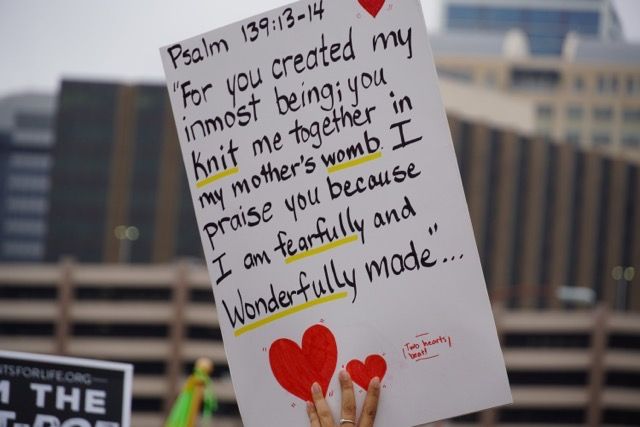 Psalm 139:13-14
"For you created my
inmost being; you
Knit me together in
my mother's womb. I
praise you because
I am fearfully and
Wonderfully made"...
Two hearts
beat!
NTSFORLIFE.ORG
THE